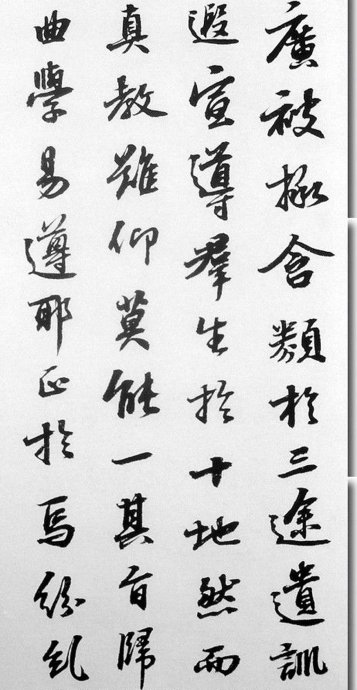 廣被拯含類於三途遺訓
遐宣導群生於十地然而
真教難仰莫能一其旨歸
曲學易遵耶正於焉紛糺